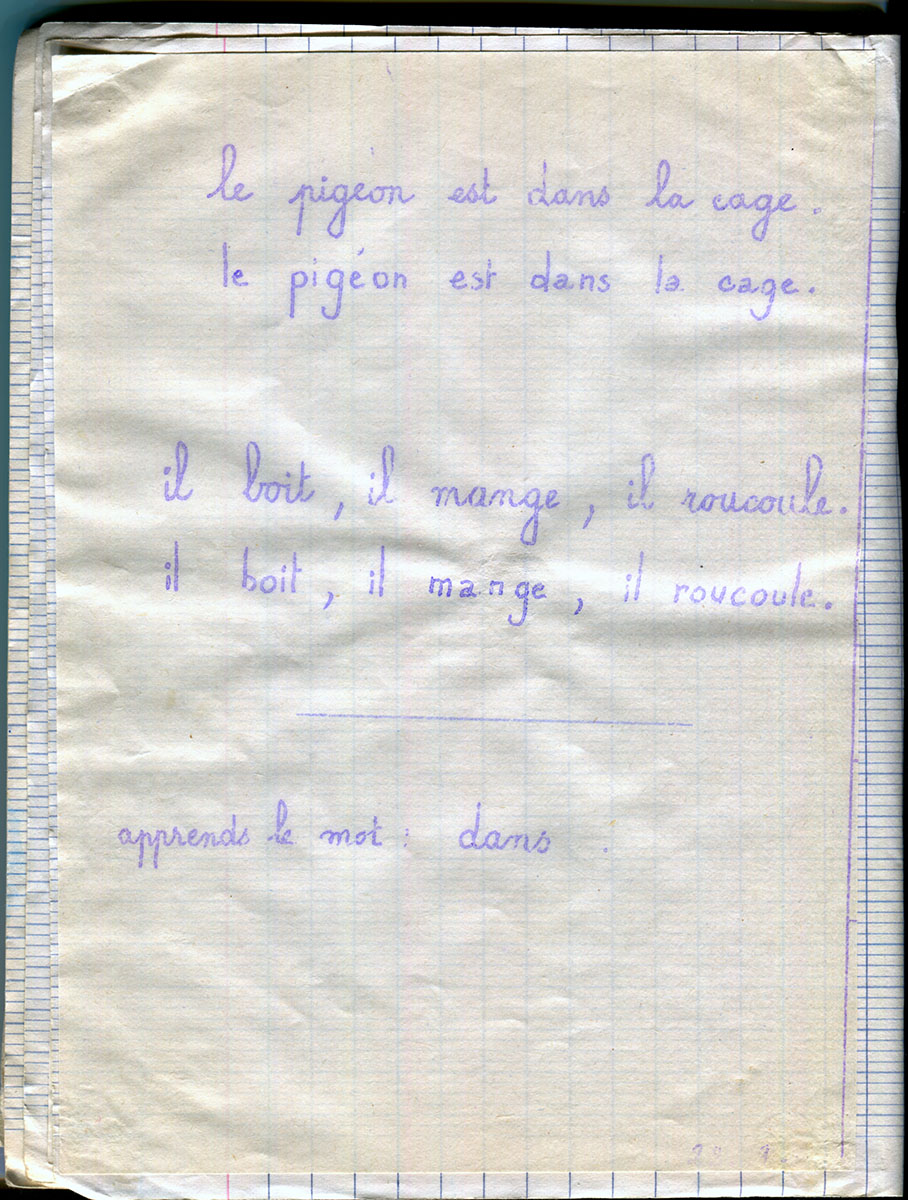 le pigéon est dans la cage.
le pigéon est dans la cage.
il boit, il mange, il roucoule.
il boit, il mange, il roucoule.
apprends le mot : dans .